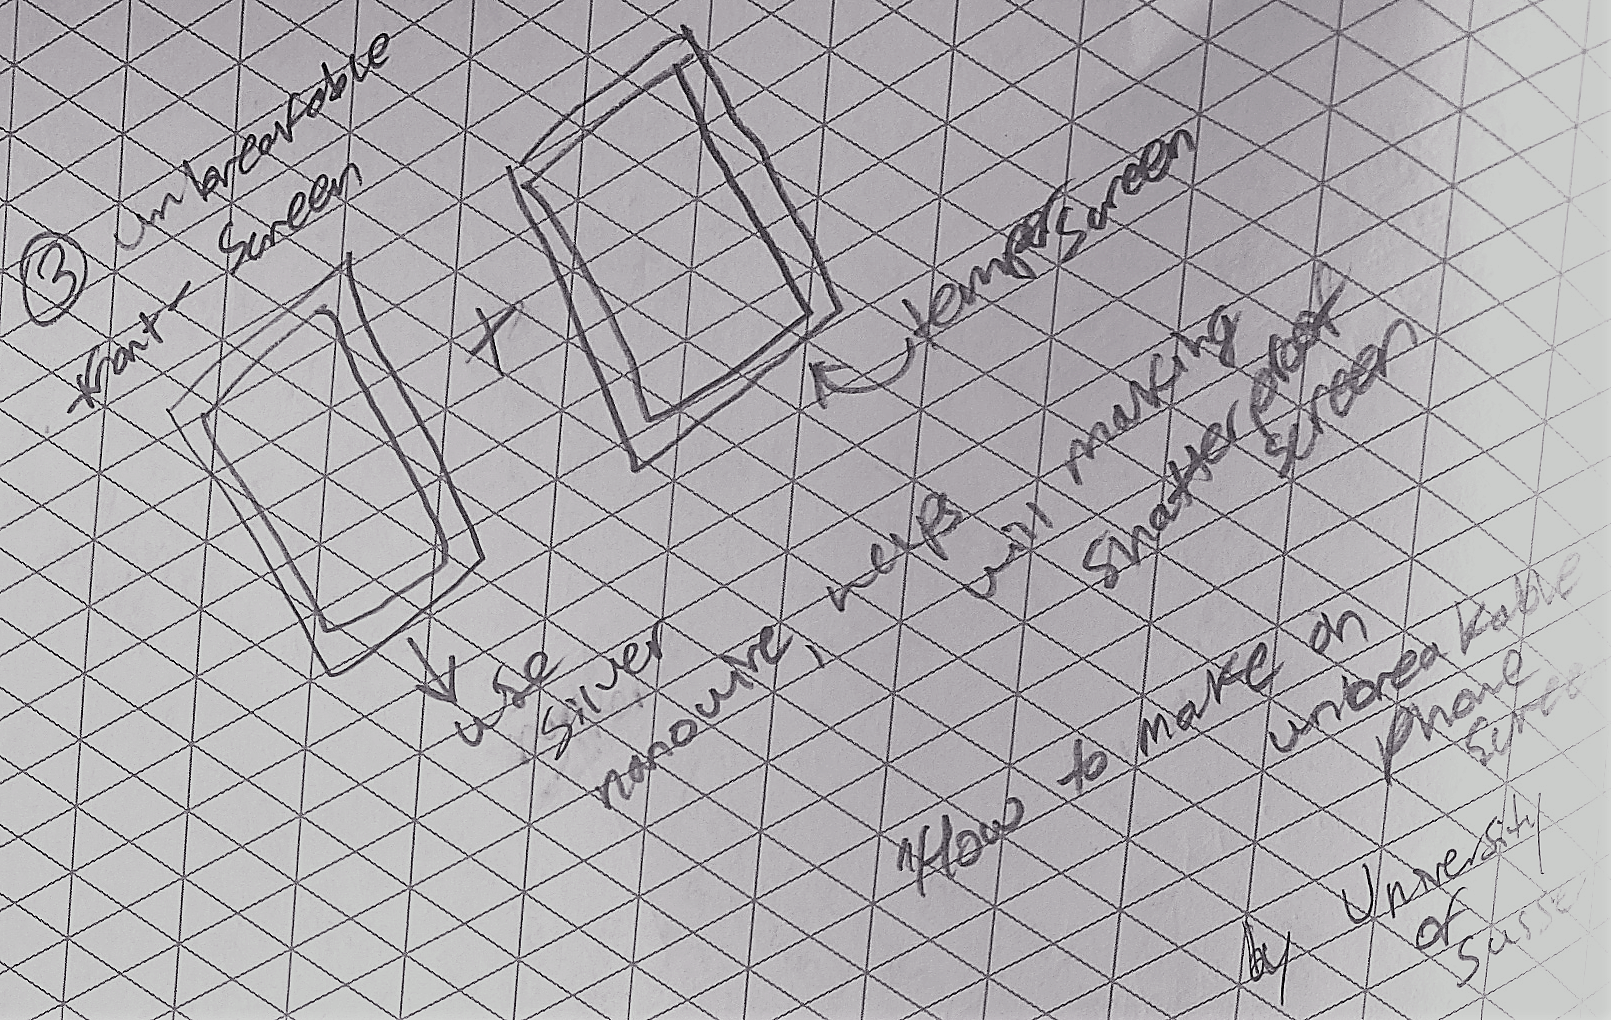 ③ unbreakable
Screen
front -
+
temper screen
use
silver
nanowire, helps
will making
shatterproof
screen
"How to make an
unbreakable
phone
scree
by University
of
Susse